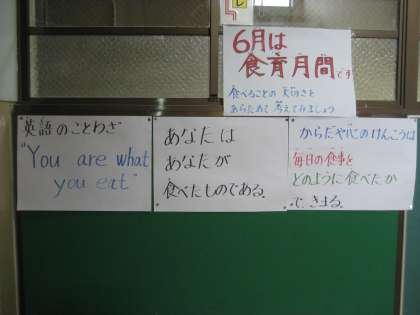 6月は
食育月間です
食べることの大切さを
あらためて考えてみましょう
英語のことわざ
"You are what
you eat"
あなたは
あなたが
食べたものである。
からだや心のけんこうは
毎日の食事を
どのように食べたか
で、きまる。